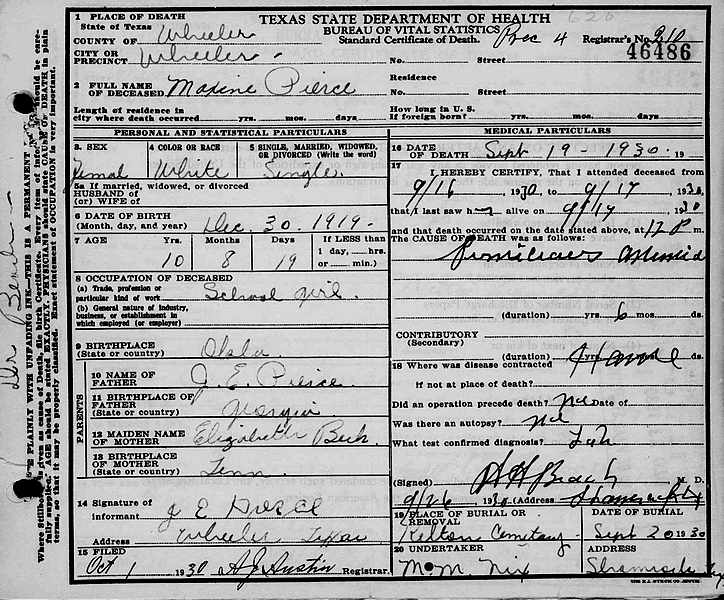 TEXAS STATE DEPARTMENT OF HEALTH
BUREAU OF VITAL STATISTICS
Standard Certificate of Death. Prec 4
626
Registrar's No. 210
46486
1 PLACE OF DEATH
State of Texas
COUNTY OF Wheeler
CITY OR
PRECINCT Wheeler - No. Street
2 FULL NAME
OF DECEASED Maxine Pierce
Residence
No. Street
Length of residence in
city where death occurred yrs. mos. days
How long in U. S.
if foreign born? yrs. mos. days
PERSONAL AND STATISTICAL PARTICULARS
3. SEX
Femal
4 COLOR OR RACE
White
5 SINGLE, MARRIED, WIDOWED,
OR DIVORCED (Write the word)
Single.
5a If married, widowed, or divorced
HUSBAND OF
(or) WIFE OF
6 DATE OF BIRTH
(Month, day, and year) Dec. 30. 1919-
7 AGE Yrs. Months Days If LESS than
10 8 19
1 day, hrs.
or min.)
8 OCCUPATION OF DECEASED
(a) Trade, profession or
particular kind of work School girl
(b) General nature of industry,
business, or establishment in
which employed (or employer)
9 BIRTHPLACE
(State or country) Okla.
PARENTS
10 NAME OF
FATHER J. E. Pierce
11 BIRTHPLACE OF
FATHER
(State or country) Georgia
12 MAIDEN NAME
OF MOTHER Elizabeth Beck
13 BIRTHPLACE
OF MOTHER
(State or country) Tenn
14 Signature of
informant J E Pierce
Address Wheeler Texas
15 FILED
Oct 1 1930 A J Austin Registrar.
MEDICAL PARTICULARS
16 DATE
OF DEATH Sept 19 - 1930. 19
17
I HEREBY CERTIFY, That I attended deceased from
9/16, 1930, to 9/17, 1930,
that I last saw h alive on 9/17, 1930
and that death occurred on the date stated above, at 12 P m.
THE CAUSE OF DEATH was as follows:
Pernicious Anemia
(duration) yrs. 6 mos. ds.
CONTRIBUTORY
(Secondary)
(duration) yrs. mos. ds.
18 Where was disease contracted Home
if not at place of death?
Did an operation precede death? No Date of
Was there an autopsy? No
What test confirmed diagnosis? Lab
(Signed) M. D.
9/26 1930 (Address) Shamrock Tx
19 PLACE OF BURIAL OR
REMOVAL
Kelton Cemetary
DATE OF BURIAL
Sept 20 1930
20 UNDERTAKER
M. M. Nix
ADDRESS
Shamrock
Where Stillborn is given as cause of Death, file birth Certificate. Every item of information should be carefully supplied. AGE should be stated EXACTLY. PHYSICIANS should state CAUSE OF DEATH in plain terms, so that it may be properly classified. Exact statement of OCCUPATION is very important.